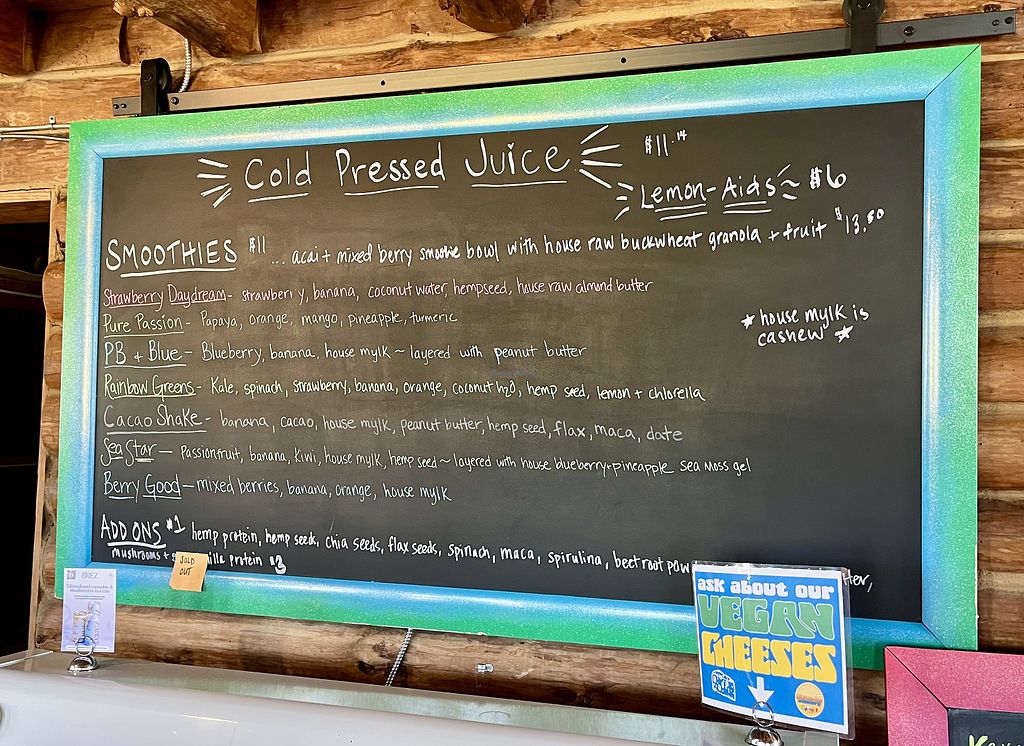 Cold Pressed Juice $11.14
Lemon-Aids ~ $6
SMOOTHIES $11 ... acai + mixed berry smoothie bowl with house raw buckwheat granola + fruit $13.50
Strawberry Daydream - strawberry, banana, coconut water, hempseed, house raw almond butter
Pure Passion - Papaya, orange, mango, pineapple, turmeric
★ house mylk is
cashew ★
PB + Blue - Blueberry, banana, house mylk ~ layered with peanut butter
Rainbow Greens - Kale, spinach, strawberry, banana, orange, coconut h2o, hemp seed, lemon + chlorella
Cacao Shake - banana, cacao, house mylk, peanut butter, hemp seed, flax, maca, date
Sea Star - Passionfruit, banana, Kiwi, house mylk, hemp seed ~ layered with house blueberry + pineapple sea moss gel
Berry Good - mixed berries, banana, orange, house mylk
ADD ONS $1 hemp protein, hemp seeds, chia seeds, flax seeds, spinach, maca, spirulina, beetroot
mushrooms + protein $3
SOLD
OUT
BREZ
ask about our
VEGAN
CHEESES